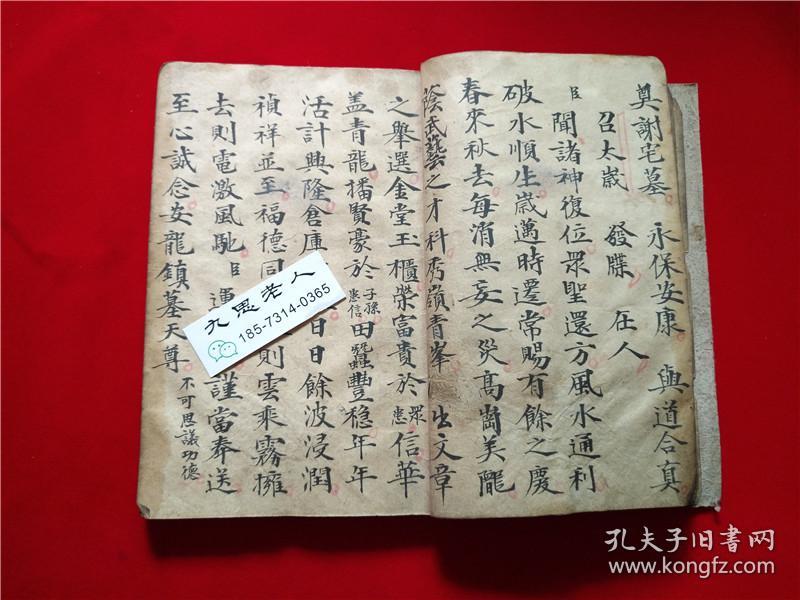 奠謝宅墓 永保安康 與道合真
召太歲 發牒 在人
臣聞諸神復位眾聖還方風水通利
破水順生歲邁時遷常賜有餘之慶
春來秋去每消無妄之災高崗美隴
蔭武藝之才科秀嶺青峯出文章
之舉選金堂玉櫃榮富貴於眾患信華
盖青龍播賢豪於子孫患信田蠶豐稔年年
活計興隆倉庫 日日餘波浸潤
禎祥並至福德同 則雲乘霧擁
去則電激風馳臣 運 謹當奉送
至心誠念安龍鎮墓天尊 不可思議功德
文思老人
185-7314-0365
孔夫子旧書网
www.kongfz.com